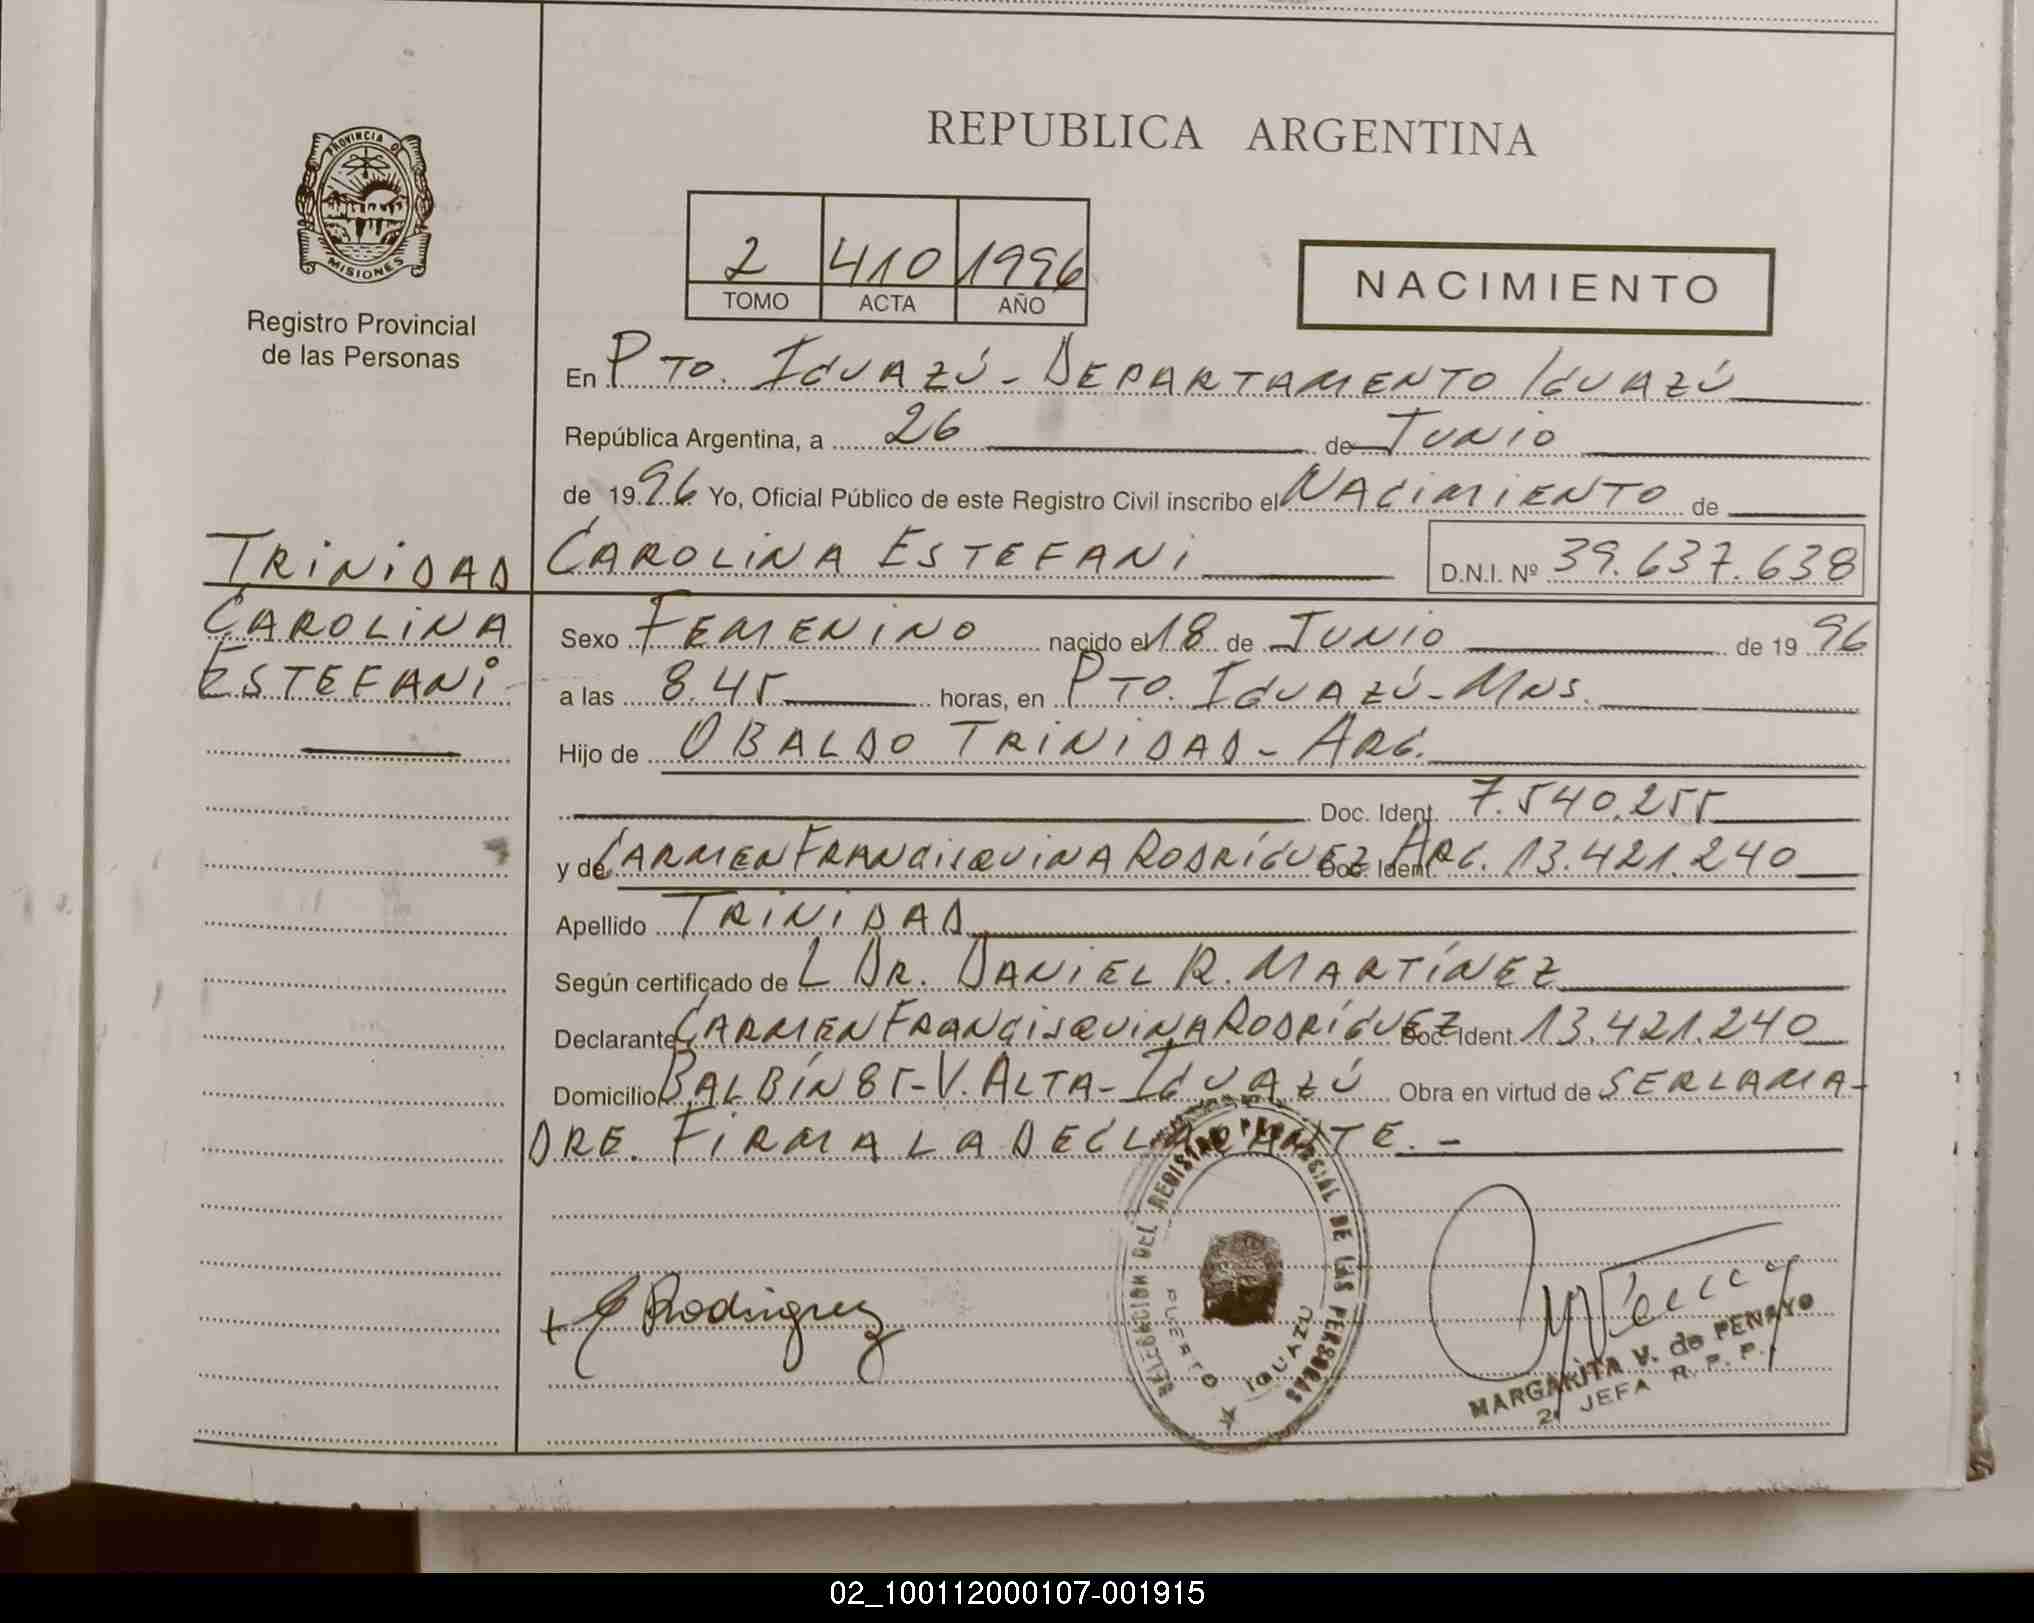 REPUBLICA ARGENTINA
PROVINCIA DE
MISIONES
Registro Provincial
de las Personas
2 410 1996
TOMO ACTA AÑO
NACIMIENTO
En PTO. IGUAZÚ - DEPARTAMENTO IGUAZÚ
República Argentina, a 26 de JUNIO
de 1996 Yo, Oficial Público de este Registro Civil inscribo el NACIMIENTO de
TRINIDAD
CAROLINA
ESTEFANI
CAROLINA ESTEFANI D.N.I. Nº 39.637.638
Sexo FEMENINO nacido el 18 de JUNIO de 1996
a las 8.45 horas, en PTO. IGUAZÚ - MNS.
Hijo de OBALDO TRINIDAD - ARG.
Doc. Ident. 7.540.255
y de CARMEN FRANCISQUINA RODRÍGUEZ Doc. Ident. ARG. 13.421.240
Apellido TRINIDAD
Según certificado de L DR. DANIEL R. MARTÍNEZ
Declarante CARMEN FRANCISQUINA RODRÍGUEZ Doc. Ident. 13.421.240
Domicilio BALBÍN 85 - V. ALTA - IGUAZÚ Obra en virtud de SER LA MA-
DRE. FIRMA LA DECLARANTE. -
DELEGACION DEL REGISTRO PROVINCIAL DE LAS PERSONAS
PUERTO IGUAZU
C Rodriguez
MARGARITA V. de PENAYO
2ª JEFA R. P. P.
02_100112000107-001915